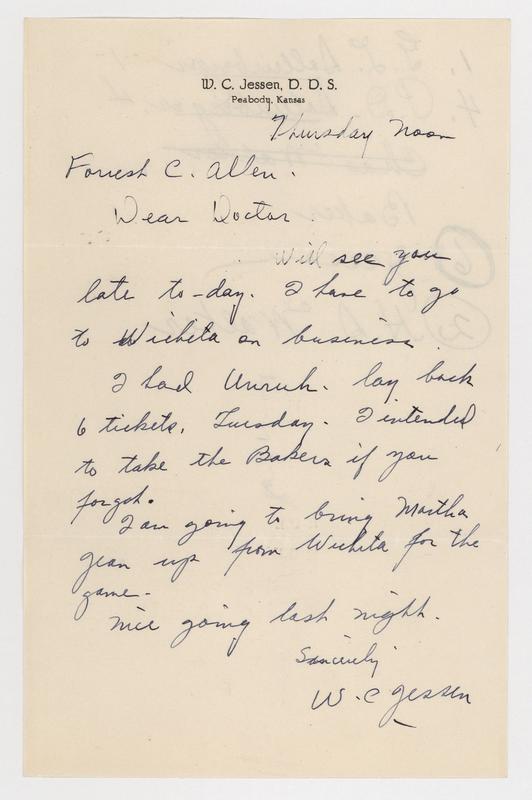 W. C. Jessen, D. D. S.
Peabody, Kansas
Thursday Noon
Forrest C. Allen.
Dear Doctor.
Will see you
late to-day. I have to go
to Wichita on business.
I had Unruh. lay back
6 tickets, Tuesday. I intended
to take the Bakers if you
forgot.
I am going to bring Martha
Jean up from Wichita for the
game.
Nice going last night.
Sincerely
W. C Jessen